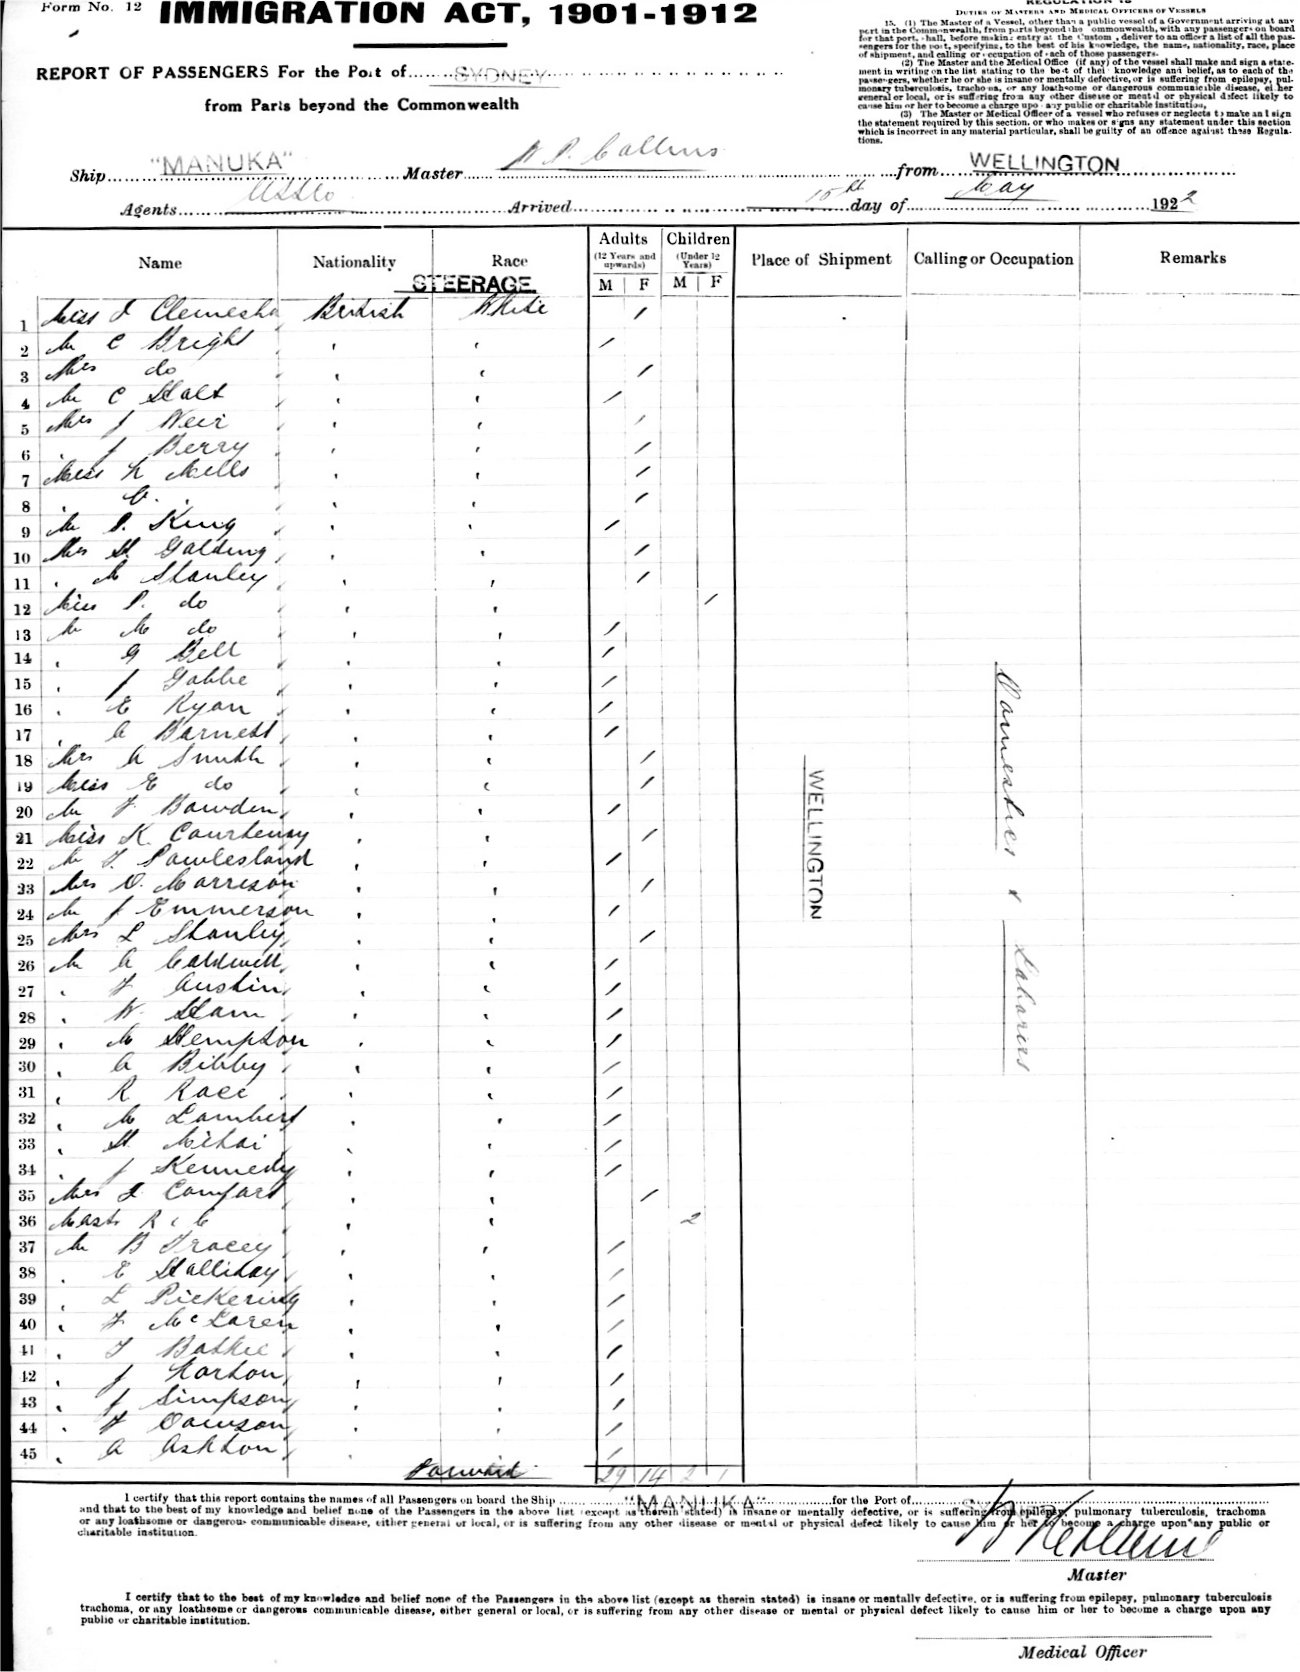 Form No. 12
IMMIGRATION ACT, 1901-1912
REPORT OF PASSENGERS For the Port of SYDNEY
from Parts beyond the Commonwealth
REGULATION
DUTIES OF MASTERS AND MEDICAL OFFICERS OF VESSELS
15. (1) The Master of a Vessel, other than a public vessel of a Government arriving at any
port in the Commonwealth, from parts beyond the Commonwealth, with any passengers on board
for that port, shall, before making entry at the Custom, deliver to an officer a list of all the pas-
sengers for the port, specifying, to the best of his knowledge, the name, nationality, race, place
of shipment, and calling or occupation of each of those passengers.
(2) The Master and the Medical Office (if any) of the vessel shall make and sign a state-
ment in writing on the list stating to the best of their knowledge and belief, as to each of the
passengers, whether he or she is insane or mentally defective, or is suffering from epilepsy, pul-
monary tuberculosis, trachoma, or any loathsome or dangerous communicable disease, either
general or local, or is suffering from any other disease or mental or physical defect likely to
cause him or her to become a charge upon any public or charitable institution,
(3) The Master or Medical Officer of a vessel who refuses or neglects to make and sign
the statement required by this section, or who makes or signs any statement under this section
which is incorrect in any material particular, shall be guilty of an offence against these Regula-
tions.
Ship "MANUKA" Master W. P. Collins from WELLINGTON
Agents USSCo Arrived 15th day of May 1922
Name Nationality Race Adults (12 Years and upwards) M F Children (Under 12 Years) M F Place of Shipment Calling or Occupation Remarks
STEERAGE
1 Miss I Clemesha British White
2 Mr C Bright
3 Mrs do
4 Mr C Holt
5 Mrs J Weir
6 J Berry
7 Miss N Mills
8
9 Mr P. King
10 Mrs H Golding
11 M Stanley
12 Miss P. do
13 Mr M do
14 G Bell
15 J Gabbe
16 E Ryan
17 A Barnett
18 Mrs A Smith
19 Miss E do
20 Mr F Bowden
21 Miss K. Courtenay
22 Mr T. Powlesland
23 Mrs O. Morrison
24 Mr J Emmerson
25 Mrs L Stanley
26 Mr A Caldwell
27 F Austin
28 W. Ham
29 M Hempton
30 A Bibby
31 R Race
32 M Lambert
33 H
34 J Kennedy
35 Mrs I Comfort
36 Mastr R & C 2
37 Mr B Tracey
38 E Halliday
39 L Pickering
40 F McLaren
41 T
42 J Norton
43 J Simpson
44 F Dawson
45 A Ashton
WELLINGTON
Domestics & Laborers
Forward 29 14 2 1
I certify that this report contains the names of all Passengers on board the Ship "MANUKA" for the Port of
and that to the best of my knowledge and belief none of the Passengers in the above list (except as therein stated) is insane or mentally defective, or is suffering from epilepsy, pulmonary tuberculosis, trachoma
or any loathsome or dangerous communicable disease, either general or local, or is suffering from any other disease or mental or physical defect likely to cause him or her to become a charge upon any public or
charitable institution.
Master
I certify that to the best of my knowledge and belief none of the Passengers in the above list (except as therein stated) is insane or mentally defective, or is suffering from epilepsy, pulmonary tuberculosis
trachoma, or any loathsome or dangerous communicable disease, either general or local, or is suffering from any other disease or mental or physical defect likely to cause him or her to become a charge upon any
public or charitable institution.
Medical Officer